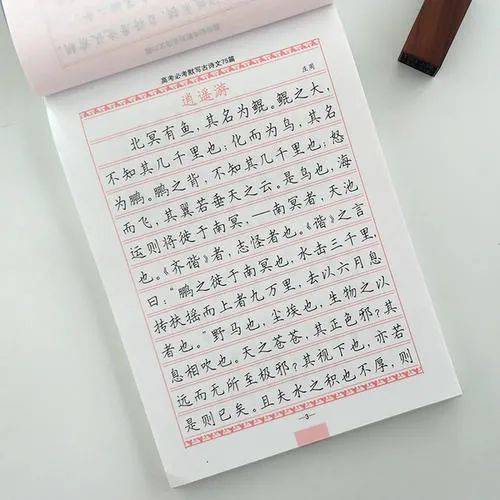 高考必考默写古诗文75篇
逍遥游
庄周
北冥有鱼，其名为鲲。鲲之大，
不知其几千里也；化而为鸟，其名
为鹏。鹏之背，不知其几千里也；怒
而飞，其翼若垂天之云。是鸟也，海
运则将徙于南冥，—南冥者，天池
也。《齐谐》者，志怪者也。《谐》之言
曰：“鹏之徙于南冥也，水击三千里，
抟扶摇而上者九万里，去以六月息
者也。”野马也，尘埃也，生物之以
息相吹也。天之苍苍，其正色邪？其
远而无所至极邪？其视下也，亦若
是则已矣。且夫水之积也不厚，则
-3-